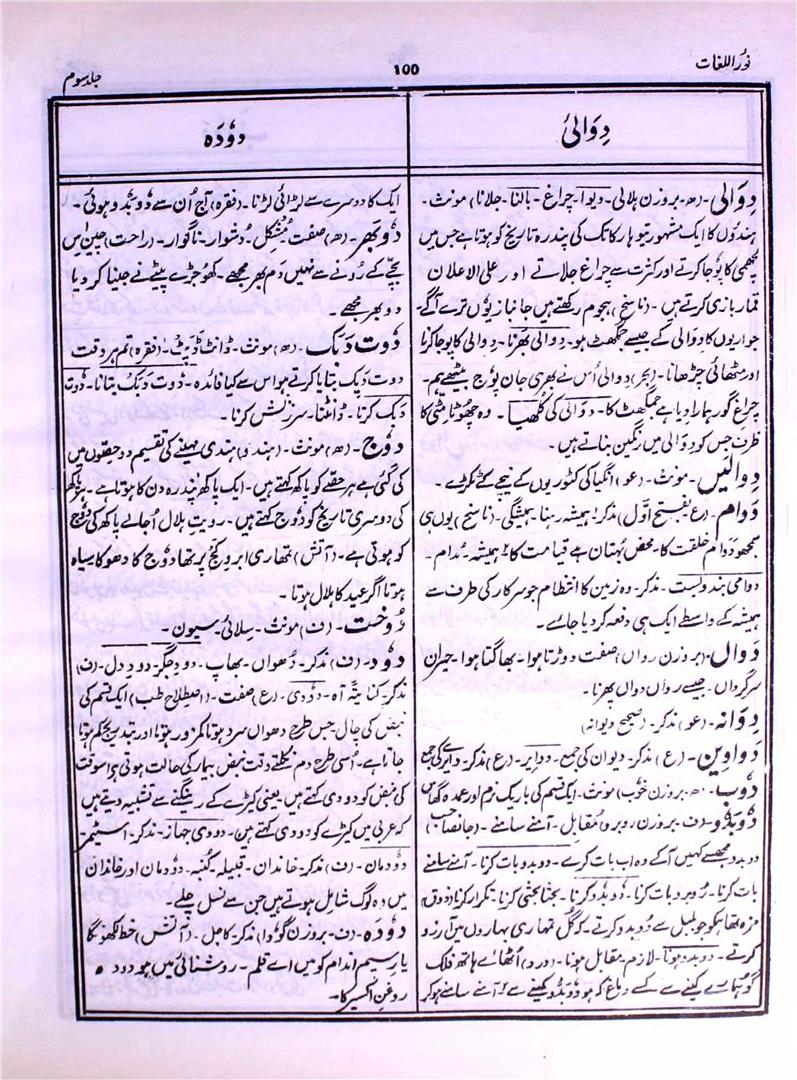 نورُاللغات
۱۵۵
جلد سوم
دِوَالیٔ
دِوَالی۔ (ھ۔ بروزن ہلالی۔ دیوا۔ چراغ۔ بالنا۔ جلانا) مونث۔
ہندوں کا ایک مشہور تیوہار کا تک کی پندرہ تاریخ کو ہوتا ہے جس میں
لچھمی کا پوجا کرتے اور کثرت سے چراغ جلاتے اور علی الاعلان
قمار بازی کرتے ہیں۔ (ناسخ) ہجوم رکھتے ہیں جانباز یوں ترے آگے
جواریوں کا دوالی کے جیسے جمگھٹ ہو۔ دوالی بھرنا۔ دوالی کا پوجا کرنا
اور مٹھائی چڑھانا۔ (بحر) دوالی اُس نے بھری جان پوج بیٹھے ہم۔
چراغ گور ہمارا دیا ہے جمگھٹ کا۔ دوالی کی کُلھیا۔ وہ چھوٹا مٹی کا
ظرف جس کو دِوالی میں رنگین بناتے ہیں۔
دِوالیں۔ مونث۔ (عو) انگیا کی کٹوریوں کے نیچے کے ٹکڑے۔
دَوَاھم۔ (ع بفتح اوّل) مذکر۔ ہمیشہ رہنا۔ ہمیشگی۔ (ناسخ) یوں ہی
سمجھو دوام خلقت کا۔ محض بُہتان ہے قیامت کا۔ ہمیشہ۔ مُدام۔
دوامی بندوبست۔ مذکر۔ وہ زمین کا انتظام جو سرکار کی طرف سے
ہمیشہ کے واسطے ایک ہی دفعہ کر دیا جائے۔
دَوَاں۔ (بروزن رواں) صفت۔ دوڑتا ہوا۔ بھاگتا ہوا۔ حیران
سرگرداں۔ جیسے رواں دواں پھرنا۔
دِوَانہ۔ (عو) مذکر۔ (صحیح دیوانہ)
دَوَاوِین۔ (ع) مذکر۔ دیوان کی جمع۔ دوایر۔ (ع) مذکر۔ دایرے کی جمع
دُوب۔ (ھ۔ بروزن خوب) مونث۔ ایک قسم کی باریک نرم اور عمدہ گھاس
دُوبَدُو۔ (ف۔ بروزن روبرو) مُقابل۔ آمنے سامنے۔ (جانصاحب)
دوبدو مجھسے کہیں آکے وہ اب بات کرے۔ دوبدو بات کرنا۔ آمنے سامنے
بات کرنا۔ رُوبرو بات کرنا۔ دُوبدو کرنا۔ بحثا بحثی کرنا۔ تکرار کرنا (ذوق)
مزہ تھا ہمکو جو بلبل سے دُوبدو کرتے۔ کہ گل تمہاری بہاروں میں آرزو
کرتے۔ دوبدو ہونا۔ لازم۔ مقابل ہونا۔ (درد) اُٹھائے ہاتھ فلک
گو ہمارے کینے سے۔ کسے دماغ کہ ہو دُوبدو کمینے سے۔ آمنے سامنے ہوکر
دوُدَہ
ایک کا دوسرے سے لڑائی لڑنا۔ (فقرہ) آج اُن سے دُوبدو ہوئی۔
دُوبھر۔ (ھ) صفت۔ مُشکل۔ دُشوار۔ ناگوار۔ (راحت) چین اِس
بچّے کے رونے سے نہیں دم بھر مجھے۔ کھوجڑے پیٹے نے جینا کر دیا
دوبھر مجھے۔
دُوت دَبک۔ (ھ) مونث۔ ڈانٹ ڈپٹ۔ (فقرہ) تم ہر وقت
دوت دبک بتایا کرتے ہو اس سے کیا فائدہ۔ دُوت دَبَک بتانا۔ دُوت
دَبک کرنا۔ ڈانٹنا۔ سرزنش کرنا۔
دُوج۔ (ھ) مونث۔ (ہندو) ہندی مہینے کی تقسیم دو حصّوں میں
کی گئی ہے ہر حصّے کو پاکھ کہتے ہیں۔ ایک پاکھ پندرہ دن کا ہوتا ہے۔ ہر پاکھ
کی دوسری تاریخ کو دُوج کہتے ہیں۔ رویتِ ہلال اُجالے پاکھ کی دُوج
کو ہوتی ہے۔ (آتش) تمھاری ابروِ کج پر تھا دوج کا دھوکا۔ سیاہ
ہوتا اگر عید کا ہلال ہوتا۔
دُوخت۔ (ف) مونث۔ سِلائی۔ سیون۔
دُود۔ (ف) مذکر۔ دھواں۔ بھاپ۔ دودِ جگر۔ دودِ دل۔ (ف)
مذکر۔ کنایۃً آہ۔ دُودی۔ (ع) صفت۔ (اصطلاح طب) ایک قسم کی
نبض کی چال۔ جس طرح دھواں سرد ہوتا کمزور ہوتا اور بتدریج کم ہوتا
جاتا ہے۔ اُسی طرح دم نکلتے وقت نبض بیمار کی حالت ہوتی ہے اسوقت
کی نبض کو دودی کہتے ہیں۔ یعنی کیڑے کے رینگنے سے تشبیہ دیتے ہیں
کہ عربی میں کیڑے کو دودی کہتے ہیں۔ دودی جہاز۔ مذکر۔ اسٹیمر۔
دودمان۔ (ف) مذکر۔ خاندان۔ قبیلہ۔ کُنبہ۔ دُودمان اور خاندان
میں وہ لوگ شامل ہوتے ہیں جن سے نسل چلے۔
دُودَہ۔ (ف۔ بروزن گوُدا) مذکر۔ کاجل۔ (آتش) خط لکھوں گا
یار سیم اندام کو میں اے قلم۔ روشنائی میں ہو دودہ
روغن اکسیر کا۔